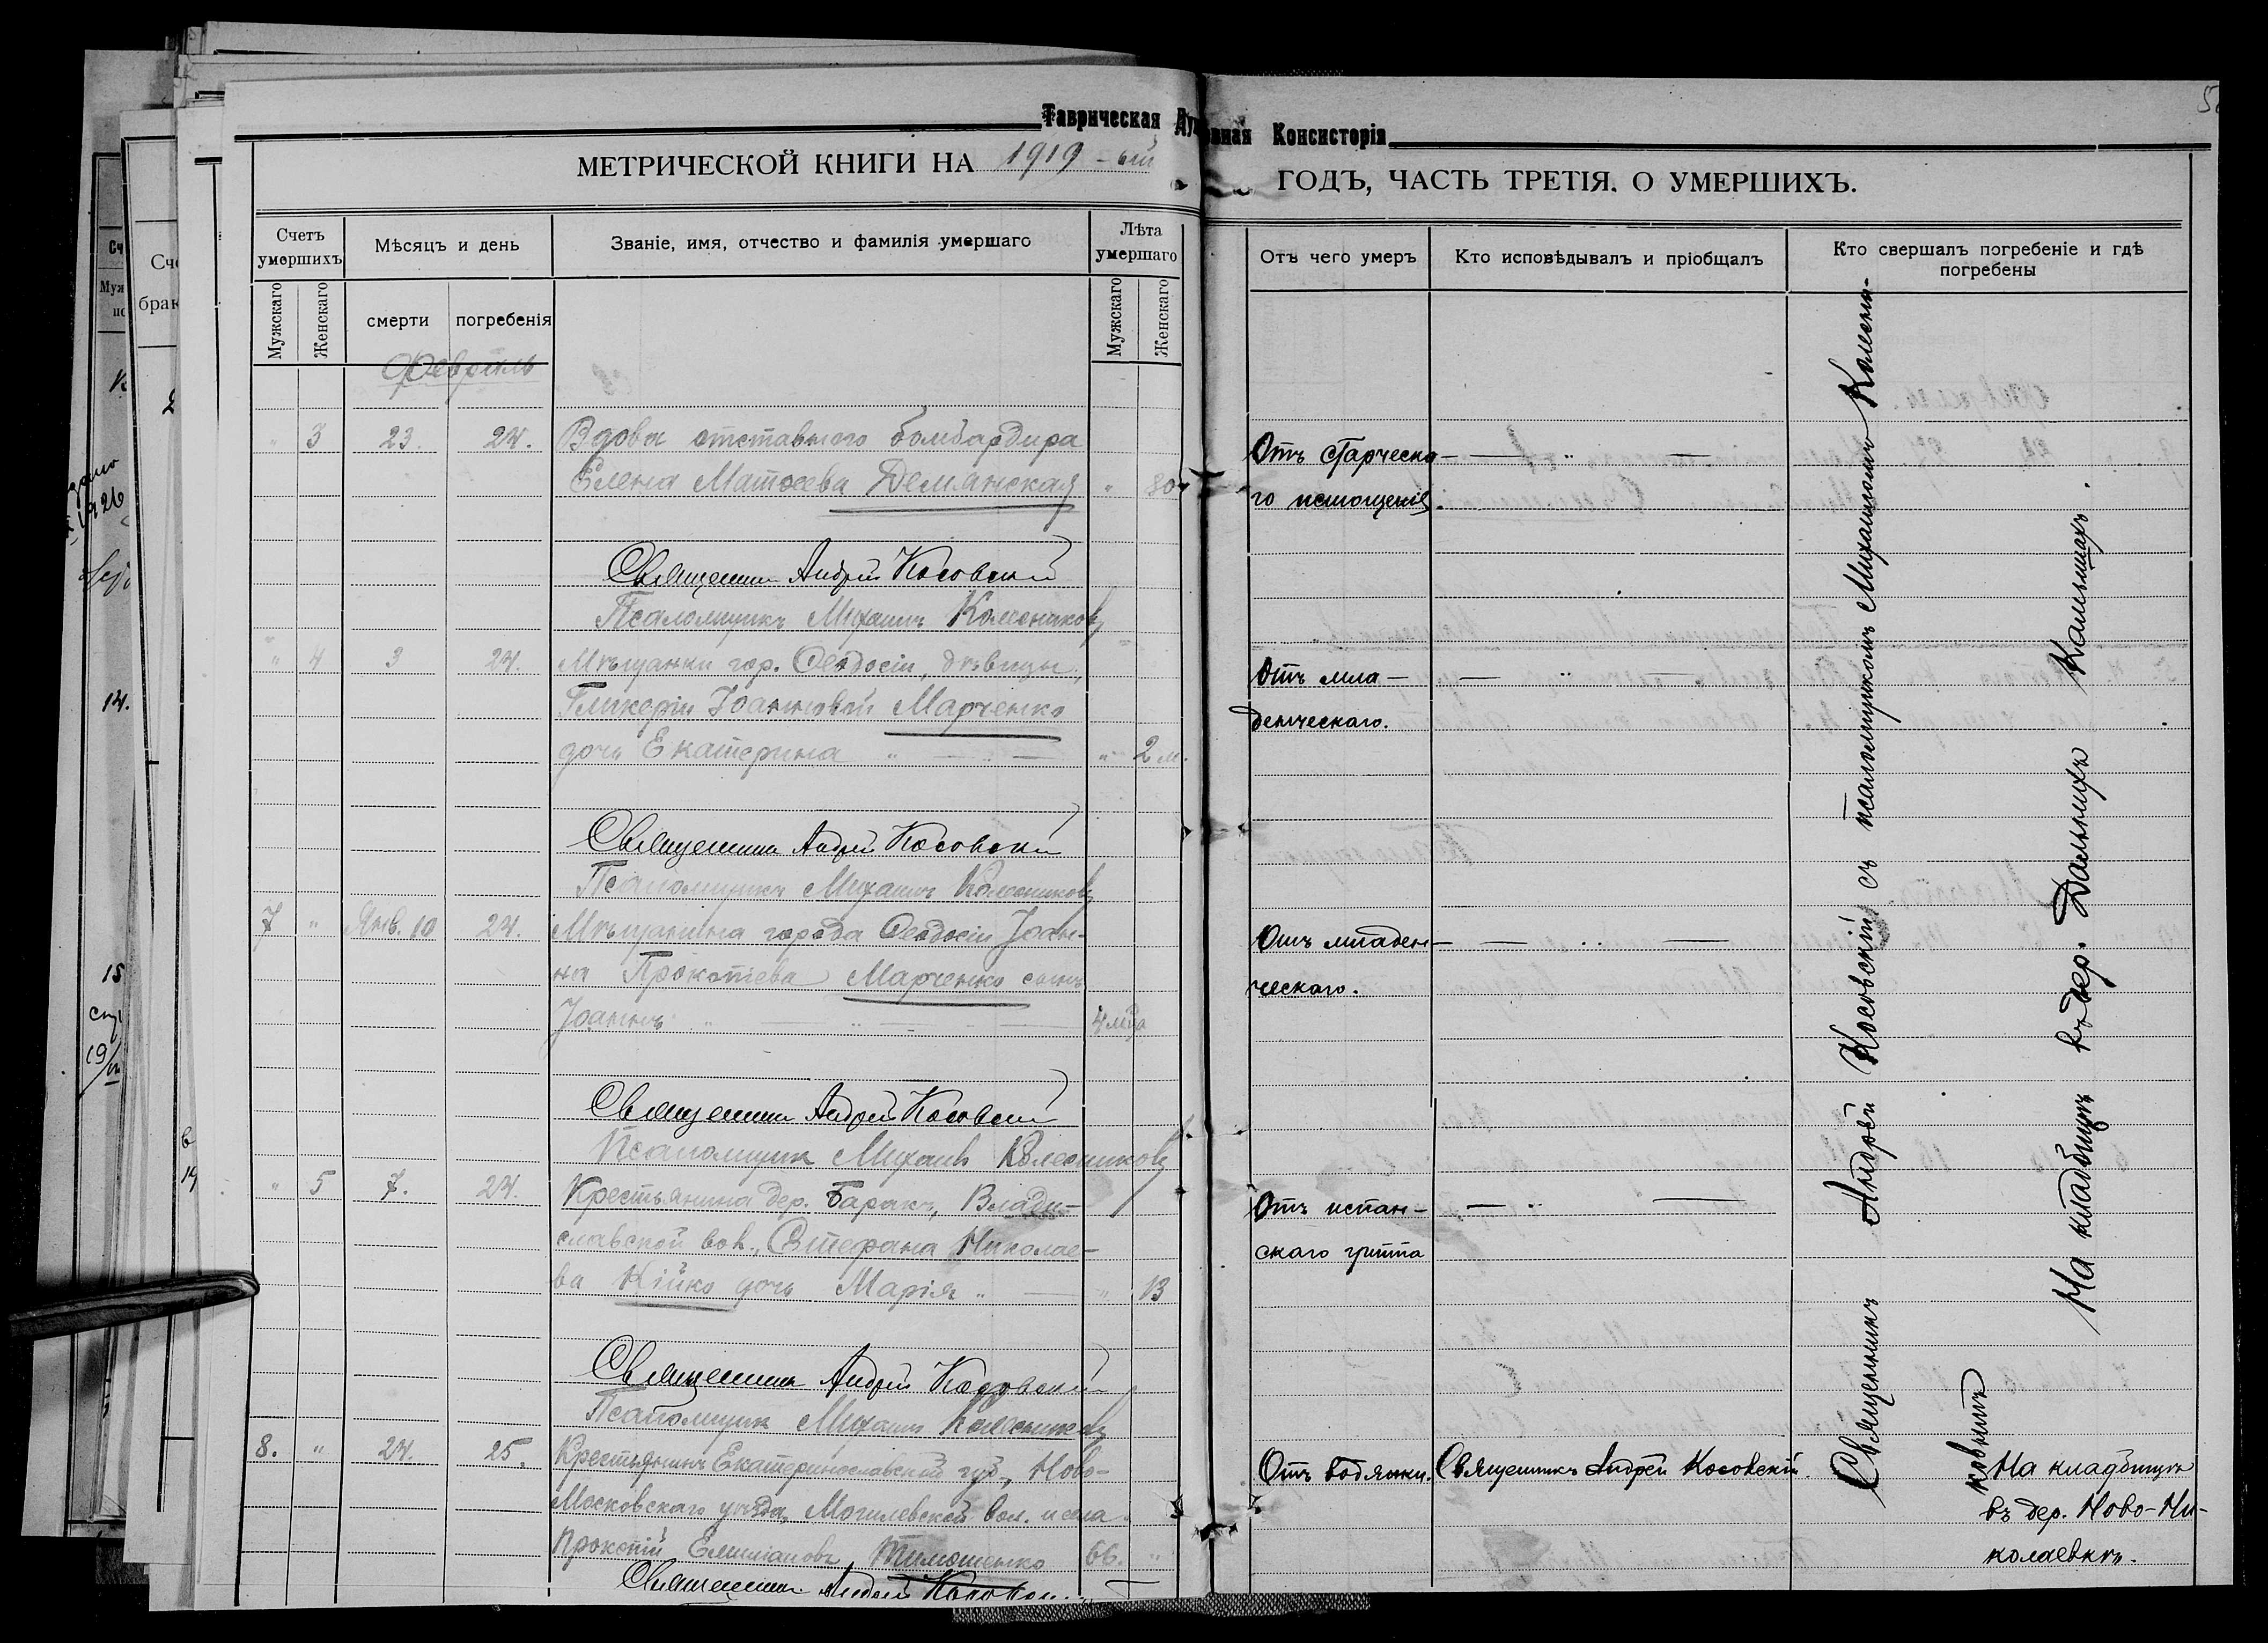 Таврическая Духовная Консисторія
МЕТРИЧЕСКОЙ КНИГИ НА 1919-ый
ГОДЪ, ЧАСТЬ ТРЕТІЯ. О УМЕРШИХЪ.
Счетъ умершихъ
Мѣсяцъ и день
Званіе, имя, отчество и фамилія умершаго
Лѣта умершаго
Мужскаго
Женскаго
смерти
погребенія
Мужскаго
Женскаго
Отъ чего умеръ
Кто исповѣдывалъ и пріобщалъ
Кто свершалъ погребеніе и гдѣ погребены
Февраль
" 3 23. 24. Вдова отставного бомбардира
Елена Матѳеева Демянская " 80
Отъ старческа-
го истощенія.
Священникъ Андрей Косовскій
Псаломщикъ Михаилъ Колесниковъ
" 4 3 24. Мѣщанки гор. Ѳеодосіи, дѣвицы,
Гликеріи Іоанновой Марченко
дочь Екатерина " " 2 м.
Отъ мла-
денческаго.
Священникъ Андрей Косовскій
Псаломщикъ Михаилъ Колесниковъ
7 " Янв. 10 24. Мѣщанина города Ѳеодосіи Іоан-
на Прокопіева Марченко сынъ
Іоаннъ " 4 мѣца
Отъ младен-
ческаго.
Священникъ Андрей Косовскій
Псаломщикъ Михаилъ Колесниковъ
" 5 7. 24. Крестьянина дер. Баракъ, Влади-
славской вол., Стефана Николае-
ва Кійко дочь Марія " " 13
Отъ испан-
скаго гриппа
Священникъ Андрей Косовскій
Псаломщикъ Михаилъ Колесниковъ
8. " 24. 25. Крестьянинъ Екатеринославской губ., Ново-
Московскаго уѣзда, Могилевской вол. и села
Прокопій Емиліановъ Тимошенко 66. "
Отъ водянки. Священникъ Андрей Косовскій.
Священникъ Андрей Косовскій
Священникъ Андрей Косовскій съ псаломщикомъ Михаиломъ Колесни-
ковымъ
На кладбищѣ въ дер. Дальнихъ Камышахъ.
На кладбищѣ
въ дер. Ново-Ни-
колаевкѣ.